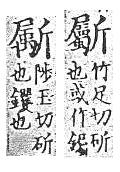 斸
竹足切斫
也或作
斸
陟玉切斫
也钁也